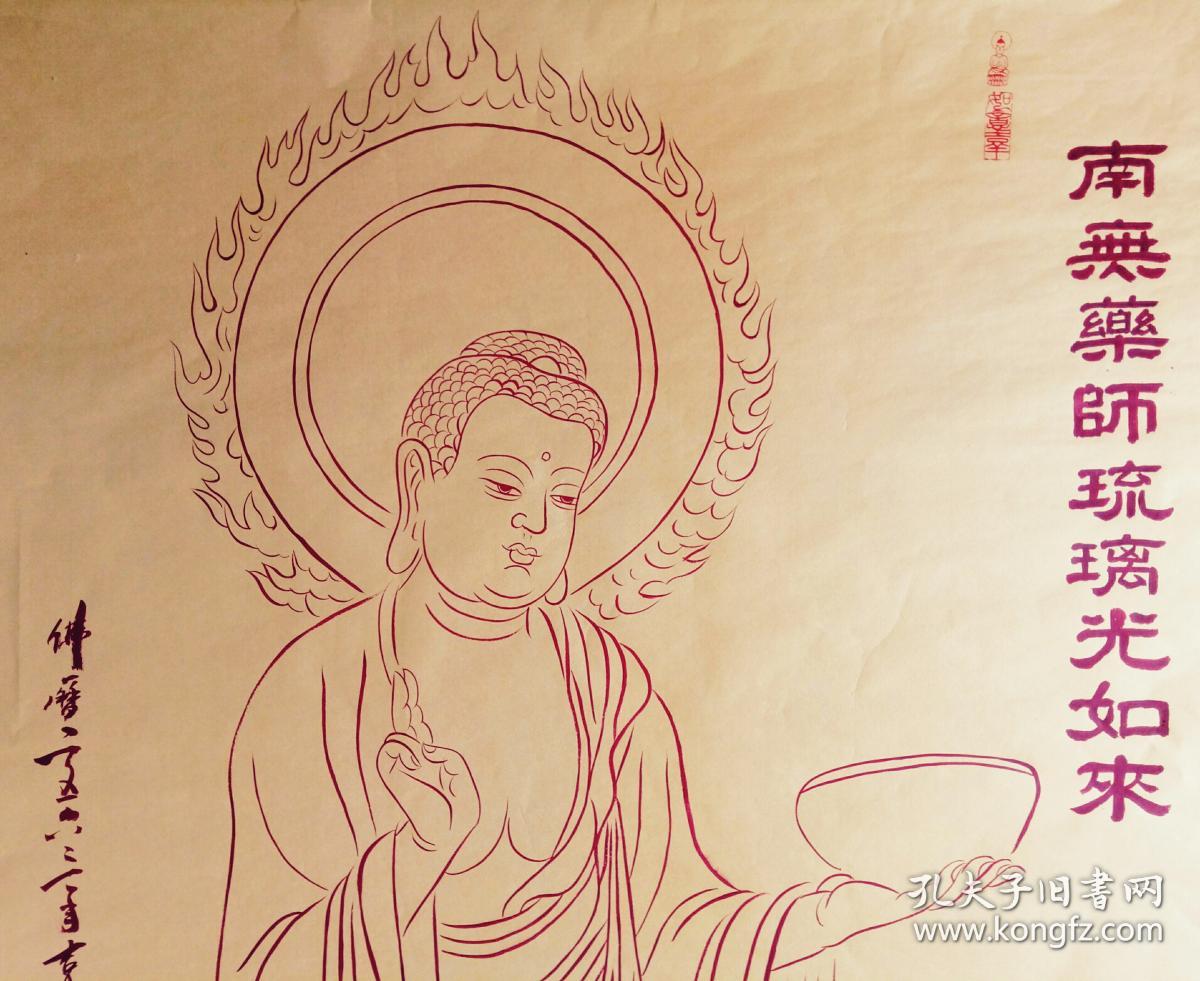 南無藥師琉璃光如來
如意金辛
佛曆二五六二年
孔夫子旧書网
www.kongfz.com